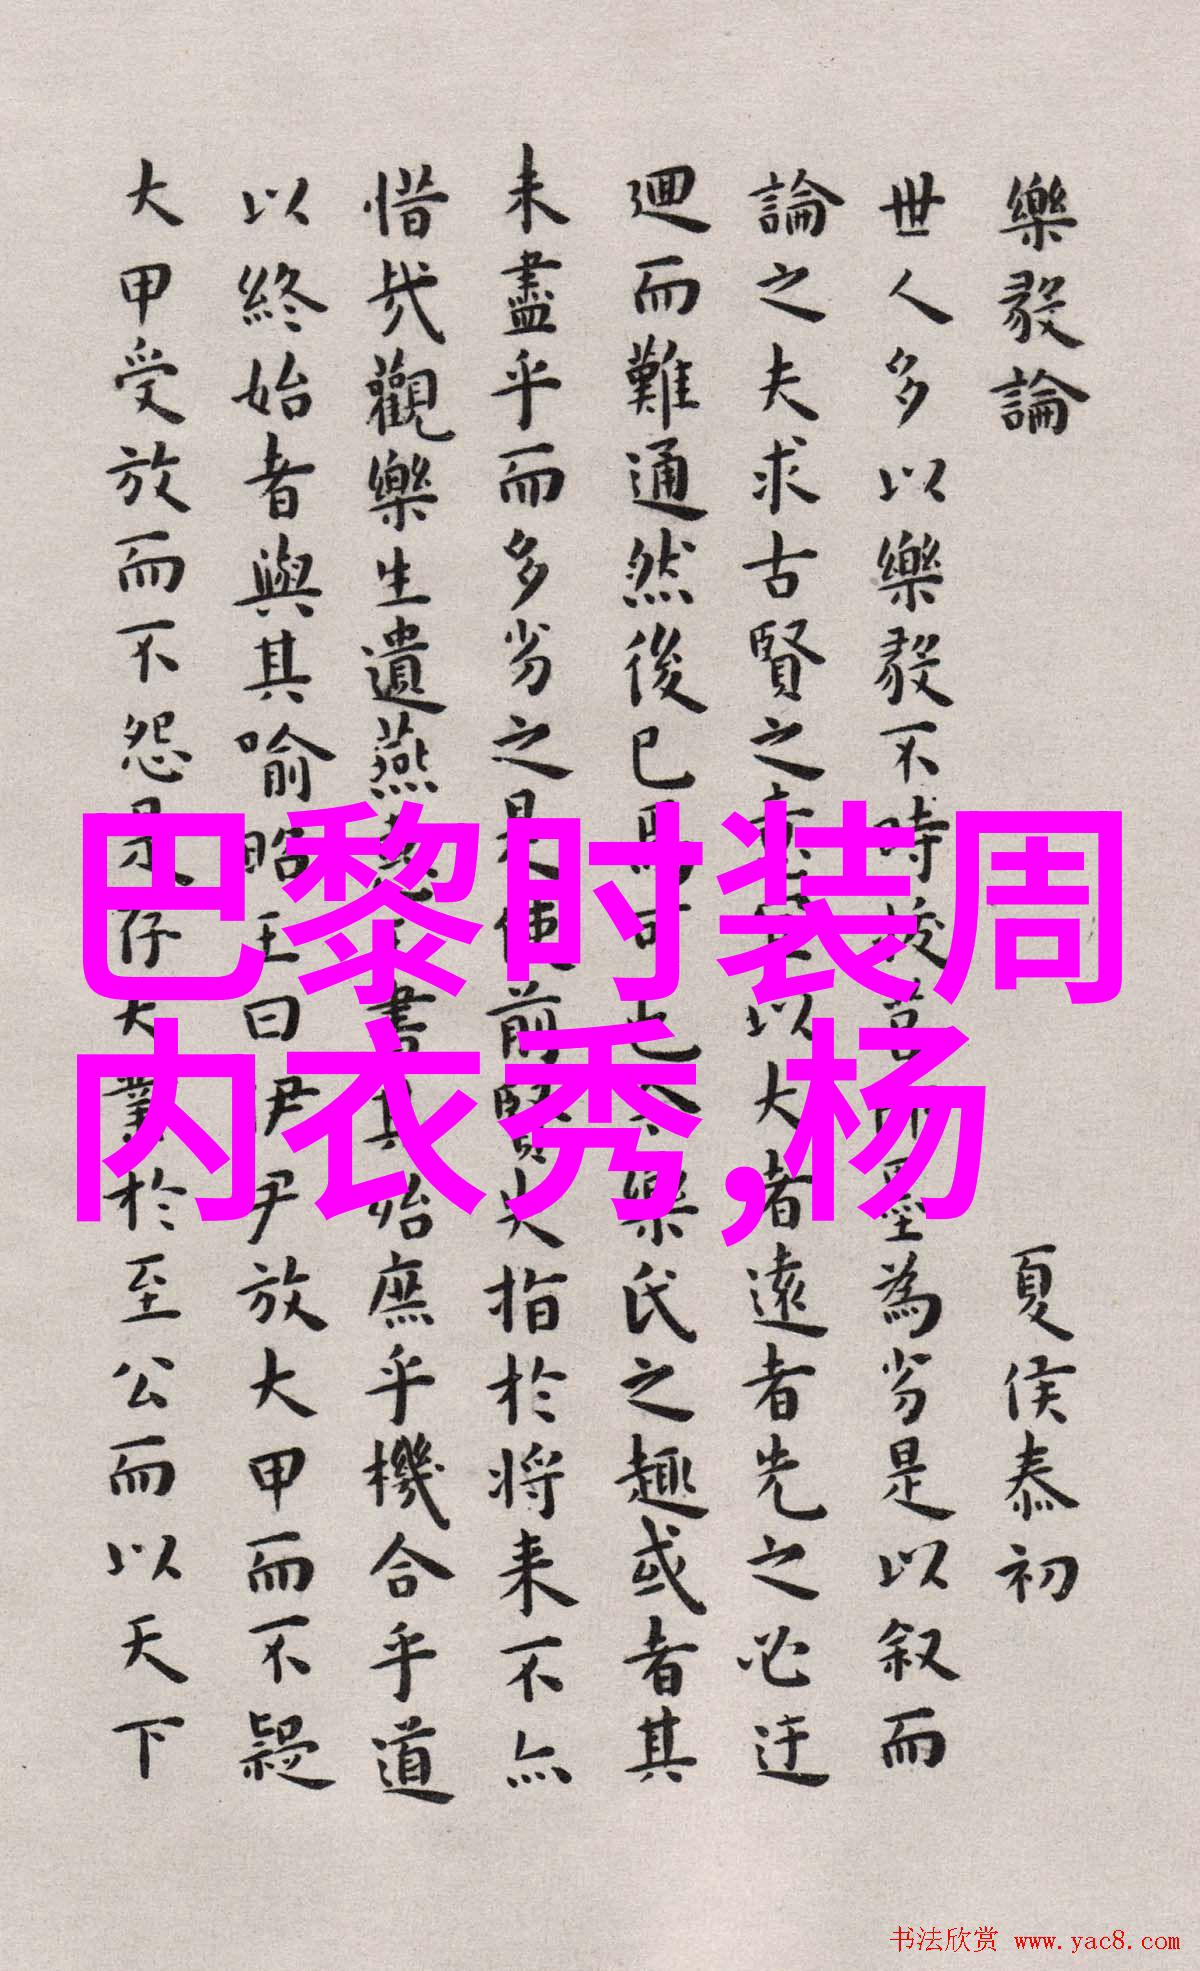 樂毅論 夏侯泰初
世人多以樂毅不時拔莒即墨為劣是以叙而
論之夫求古賢之意以大者遠者先之必迂
迴而難通然後已焉可也今樂氏之趣或者其
未盡乎而多劣之是使前賢失指於將来不亦
惜哉觀樂生遺燕惠王書其殆庶乎機合乎道
以終始者與其喻昭王曰伊尹放大甲而不疑
大甲受放而不怨是存大業於至公而以天下
巴黎时装周
内衣秀,杨
书法欣赏 www.yac8.com